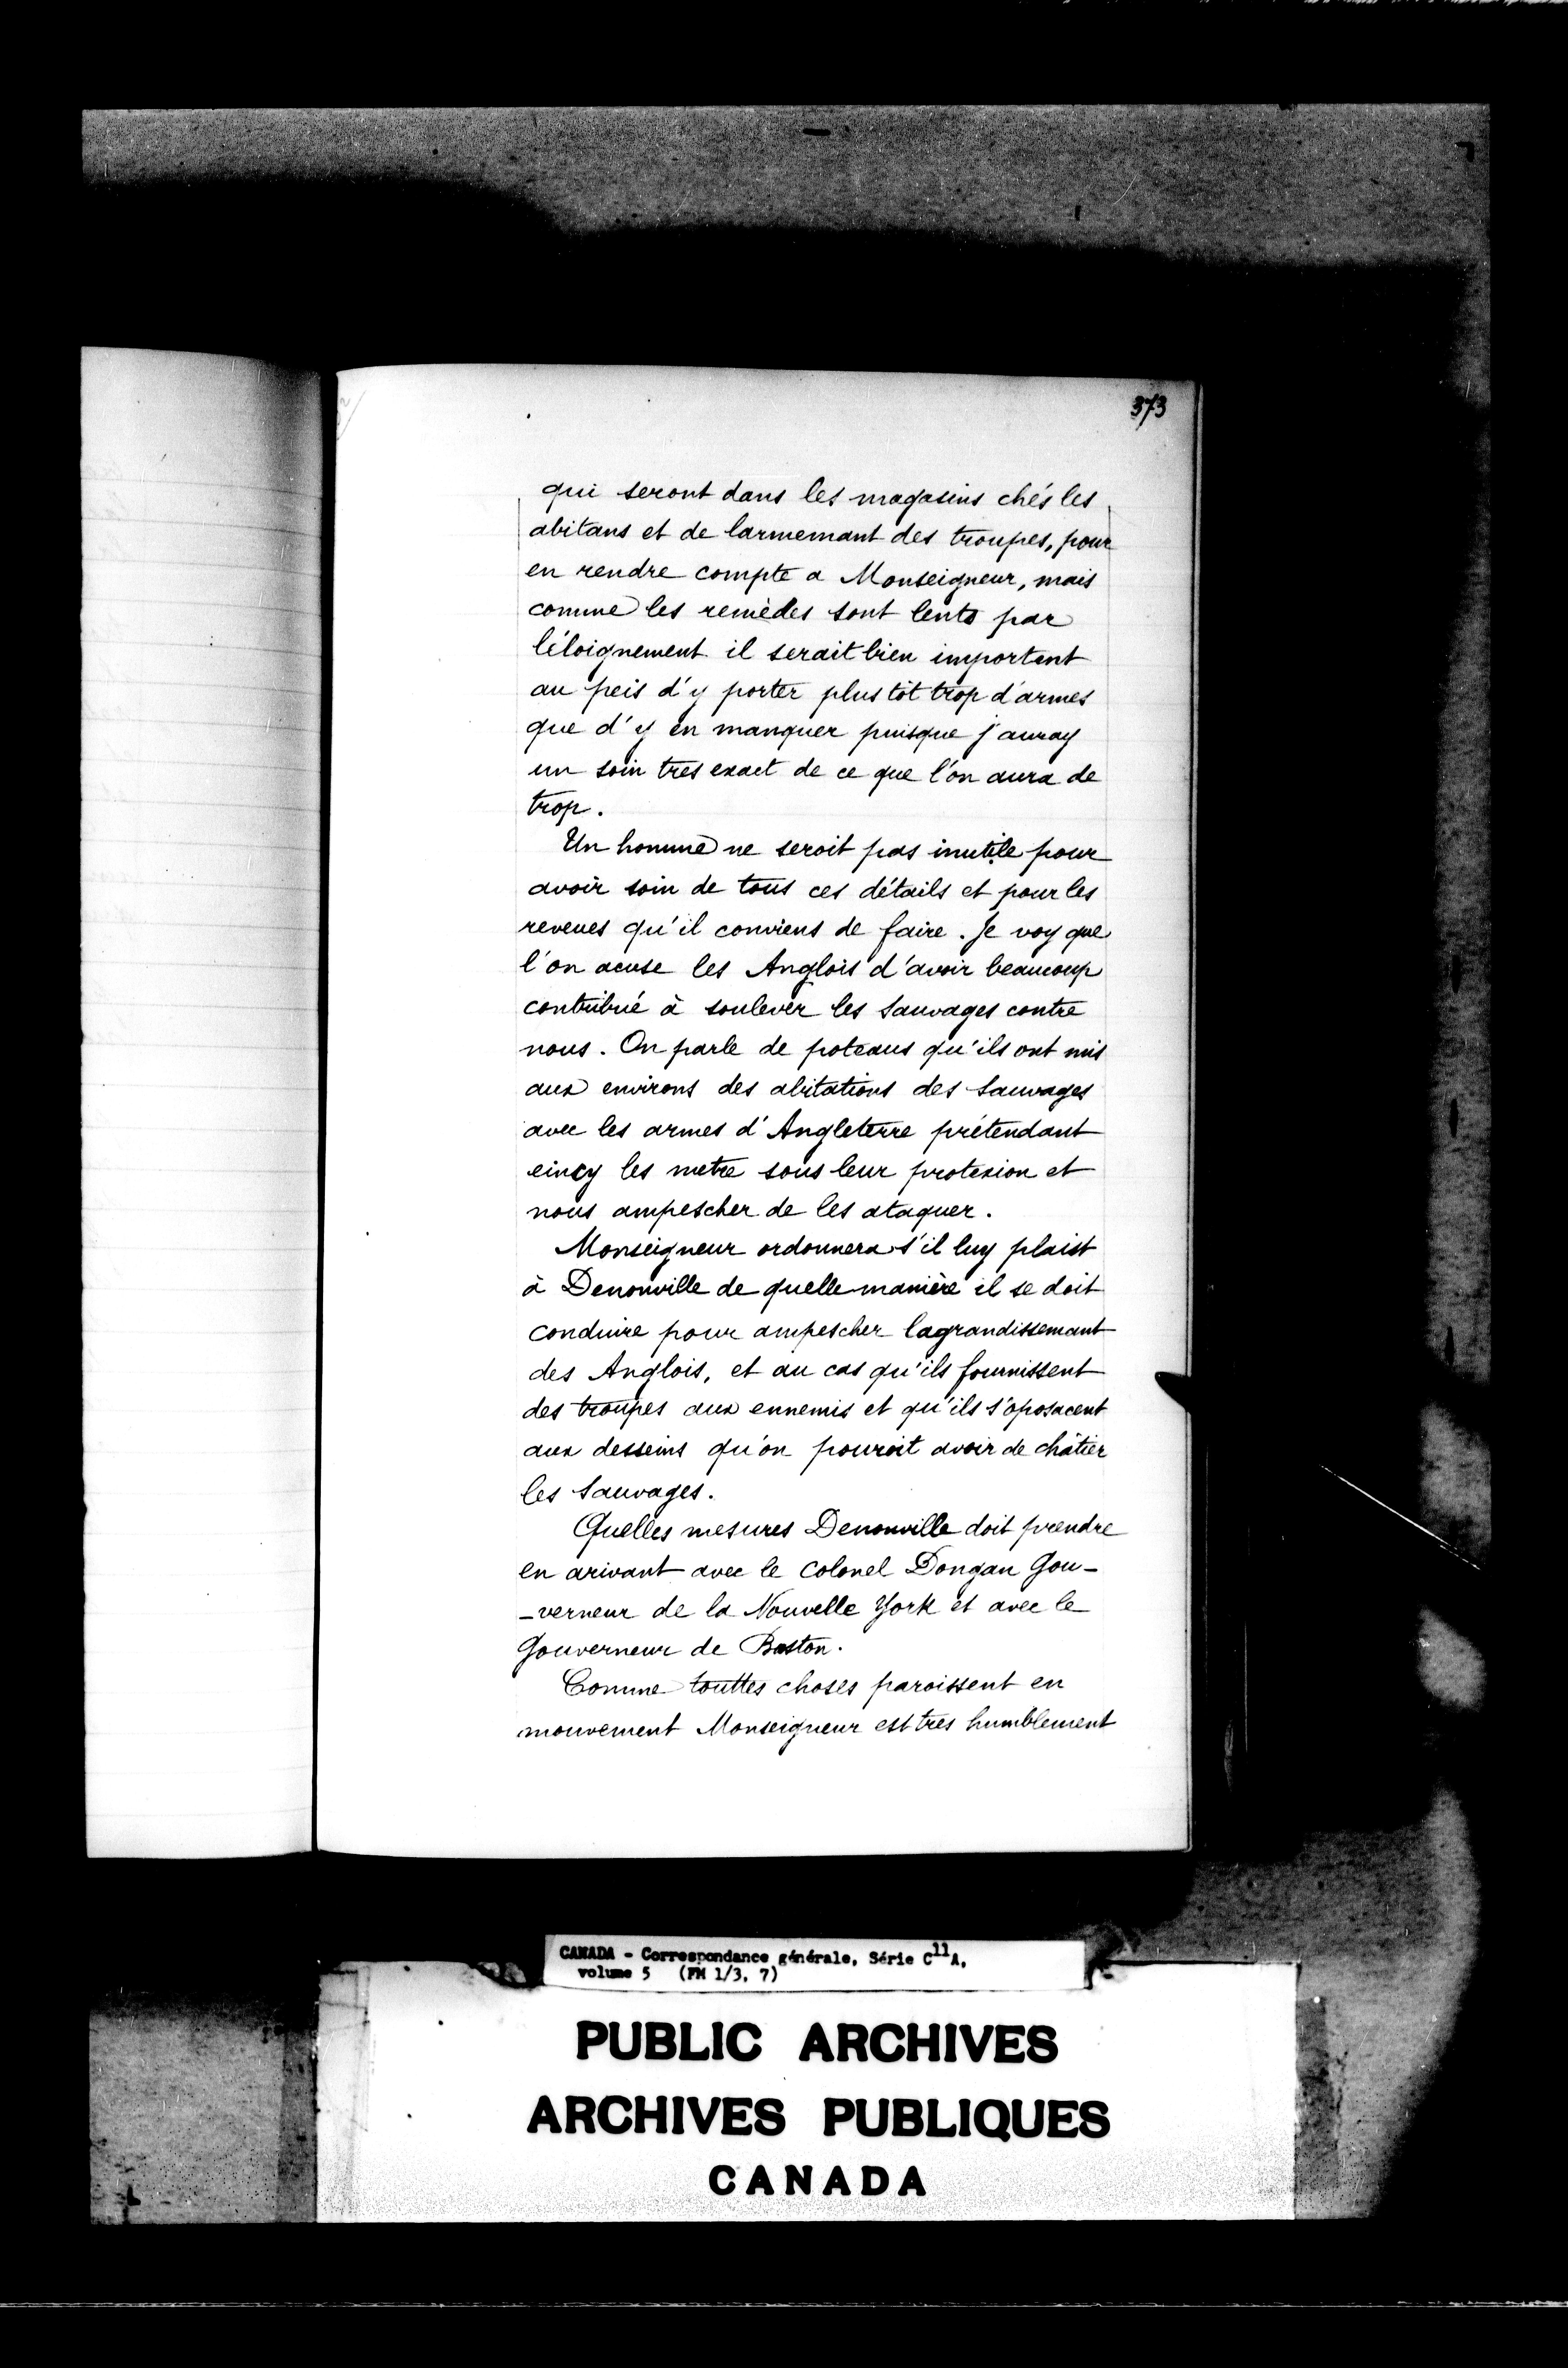 373
qui seront dans les magasins chés les
abitans et de larmemant des troupes, pour
en rendre compte a Monseigneur, mais
comme les remèdes sont lents par
l'éloignement il serait bien important
au peis d'y porter plus tôt trop d'armes
que d'y en manquer puisque j'auray
un soin tres exact de ce que l'on aura de
trop.
Un homme ne seroit pas inutile pour
avoir soin de tous ces détails et pour les
reveues qu'il conviens de faire. Je voy que
l'on acuse les Anglois d'avoir beaucoup
contribué à soulever les Sauvages contre
nous. On parle de poteaus qu'ils ont mis
aux environs des abitations des Sauvages
avec les armes d'Angleterre prétendant
eincy les metre sous leur protexion et
nous ampescher de les ataquer.
Monseigneur ordonnera s'il luy plaist
à Denonville de quelle manière il se doit
conduire pour ampescher lagrandissemant
des Anglois, et au cas qu'ils fournissent
des troupes aux ennemis et qu'ils s'oposacent
aux desseins qu'on pouroit avoir de châtier
les Sauvages.
Quelles mesures Denonville doit prendre
en arivant avec le Colonel Dongan Gou-
-verneur de la Nouvelle York et avec le
Gouverneur de Baston.
Comme touttes choses paroissent en
mouvement Monseigneur est tres humblement
CANADA - Correspondance générale, Série C11A,
volume 5 (FM 1/3, 7)
PUBLIC ARCHIVES
ARCHIVES PUBLIQUES
CANADA